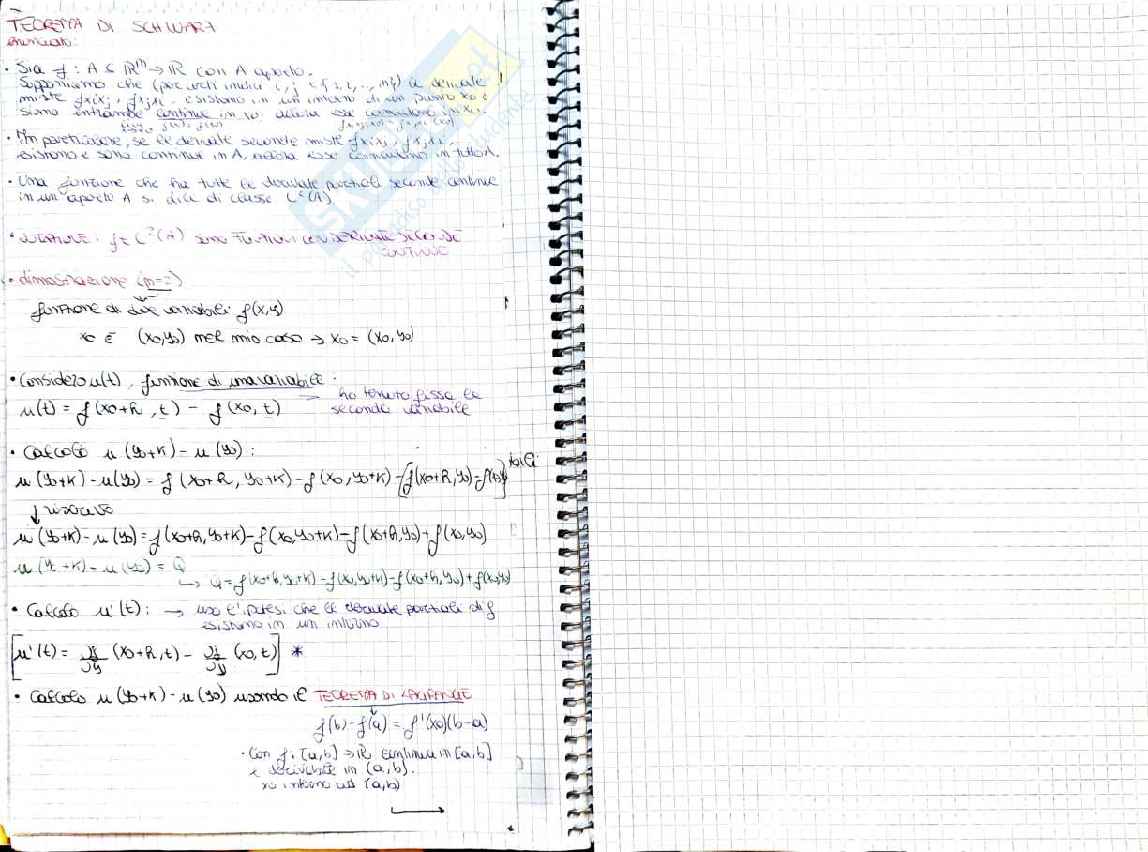 TEOREMA DI SCHWARZ
enunciato:
• Sia f: A ⊆ ℝⁿ → ℝ con A aperto.
Supponiamo che (per certi indici i, j ∈ {1, 2, .., n}) le derivate
miste fxixj, fxjxi, esistono in un intorno di un punto x0 e
siano entrambe continue in x0 allora esse coincidono in x0.
• In particolare, se le derivate seconde miste fxixj, fxjxi
esistono e sono continue in A, allora esse coincidono in tutto A.
• Una funzione che ha tutte le derivate parziali seconde continue
in un aperto A si dice di classe C²(A).
f ∈ C²(A) sono FUNZIONI CON DERIVATE SECONDE
CONTINUE
• dimostrazione (n=2)
funzione di due variabili f(x,y)
x0 è (x0,y0) nel mio caso → x0 = (x0,y0)
• Considero u(t), funzione di una variabile:
u(t) = f(x0+h, t) - f(x0, t) → ho tenuto fissa la
seconda variabile
• Calcolo u(y0+k) - u(y0):
u(y0+k) - u(y0) = f(x0+h, y0+k) - f(x0, y0+k) - [f(x0+h, y0) - f(x0,y0)]
↓ ricavo
u(y0+k) - u(y0) = f(x0+h, y0+k) - f(x0, y0+k) - f(x0+h, y0) + f(x0, y0)
u(y0+k) - u(y0) = Q
↳ Q = f(x0+h, y0+k) - f(x0, y0+k) - f(x0+h, y0) + f(x0,y0)
• Calcolo u'(t): → uso l'ipotesi che le derivate parziali di f
esistono in un intorno
[u'(t) = ∂f/∂y (x0+h, t) - ∂f/∂y (x0, t)] *
• Calcolo u(y0+k) - u(y0) usando il TEOREMA DI LAGRANGE
↓
f(b) - f(a) = f'(x0)(b-a)
• Con f: [a,b] → ℝ continua in [a,b]
e derivabile in (a,b).
x0 interno ad (a,b)
→
SKUOLA.net